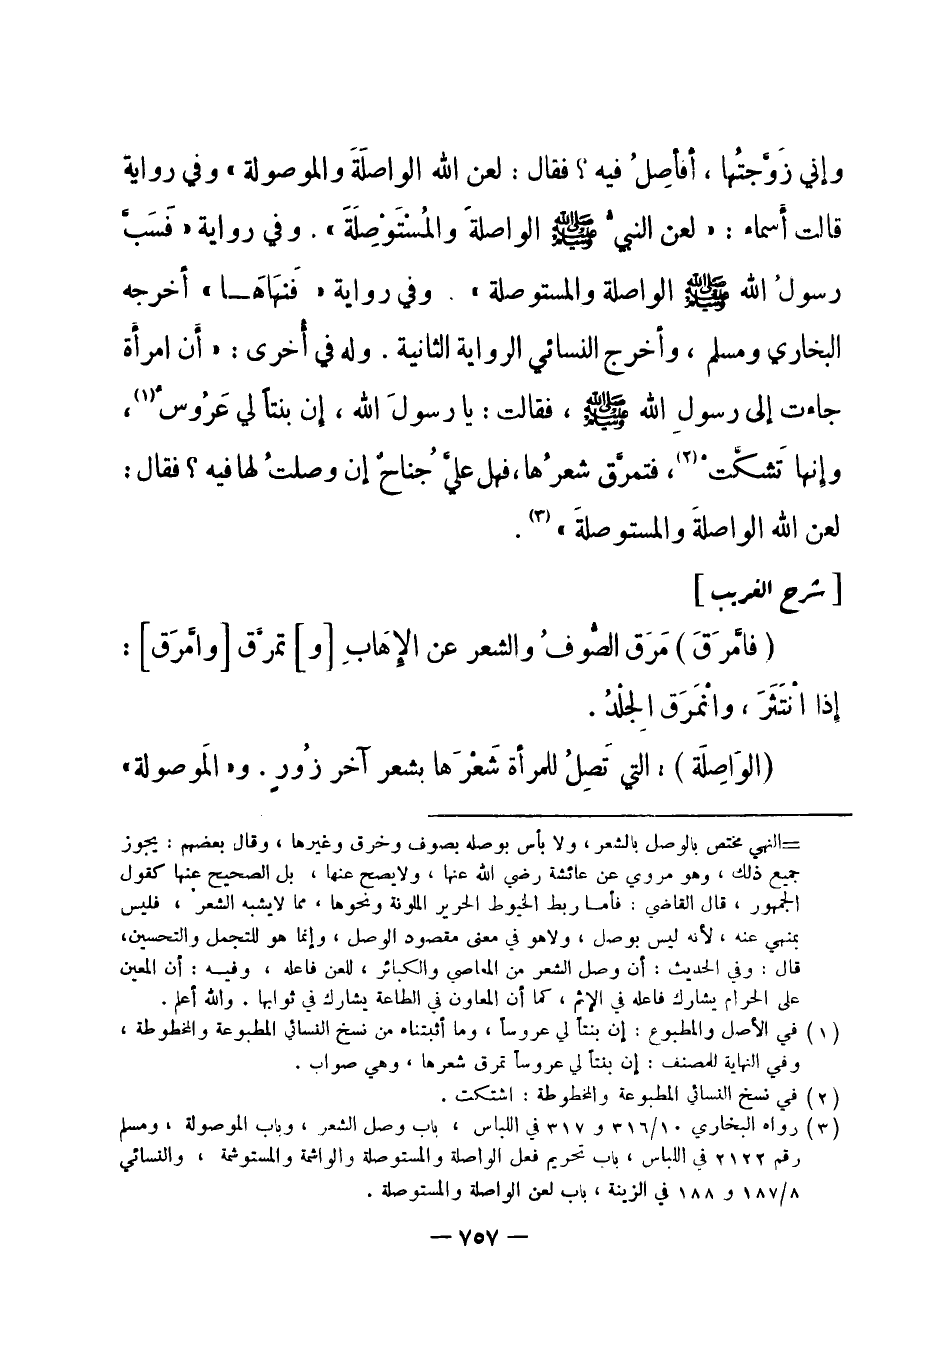 وإني زَوَّجتُها ، أفأصِلُ فيه ؟ فقال : لعن الله الواصلَةَ والموصولة » وفي رواية
قالت أسماء : « لعن النبيُّ ﷺ الواصلةَ والمُسْتَوْصِلَةَ » . وفي رواية « فَسَبَّ
رسولُ الله ﷺ الواصلة والمستوصلة » . وفي رواية « فَنهَاهَــا » أخرجه
البخاري ومسلم ، وأخرج النسائي الرواية الثانية . وله في أُخرى : « أن امرأة
جاءت إلى رسولِ الله ﷺ ، فقالت : يا رسولَ الله ، إن بنتاً لي عَرُوسٌ (١) ،
وإنها تَشكَّتْ (٢) ، فتمرَّق شعرُها ، فهل عليَّ جُناحٌ إن وصلتُ لها فيه ؟ فقال :
لعن الله الواصلةَ والمستوصلةَ » (٣) .
[ شرح الغريب ]
( فامَّرَقَ ) مَرَق الصُّوفُ والشعر عن الإِهَابِ [ و ] تمرَّق [ وامَّرَق ] :
إذا انْتَثَرَ ، وانْمَرَق الجِلْدُ .
( الوَاصِلَة ) : التي تَصِلُ للمرأة شَعْرَها بشعر آخر زُورٍ . و« المَوصولة »
=النهي مختص بالوصل بالشعر ، ولا بأس بوصله بصوف وخرق وغيرها ، وقال بعضهم : يجوز
جميع ذلك ، وهو مروي عن عائشة رضي الله عنها ، ولايصح عنها ، بل الصحيح عنها كقول
الجمهور ، قال القاضي : فأمــا ربط الخيوط الحرير الملونة ونحوها ، مما لايشبه الشعر ، فليس
بمنهي عنه ، لأنه ليس بوصل ، ولاهو في معنى مقصود الوصل ، وإنما هو للتجمل والتحسين ،
قال : وفي الحديث : أن وصل الشعر من المعاصي والكبائر ، للعن فاعله ، وفيــه : أن المعين
على الحرام يشارك فاعله في الإثم ، كما أن المعاون في الطاعة يشارك في ثوابها . والله أعلم .
(١) في الأصل والمطبوع : إن بنتاً لي عروساً ، وما أثبتناه من نسخ النسائي المطبوعة والمخطوطة ،
وفي النهاية للمصنف : إن بنتاً لي عروساً تمرق شعرها ، وهي صواب .
(٢) في نسخ النسائي المطبوعة والمخطوطة : اشتكت .
(٣) رواه البخاري ٣١٦/١٠ و ٣١٧ في اللباس ، باب وصل الشعر ، وباب الموصولة ، ومسلم
رقم ٢١٢٢ في اللباس ، باب تحريم فعل الواصلة والمستوصلة والواشمة والمستوشمة ، والنسائي
١٨٧/٨ و ١٨٨ في الزينة ، باب لعن الواصلة والمستوصلة .
— ٧٥٧ —